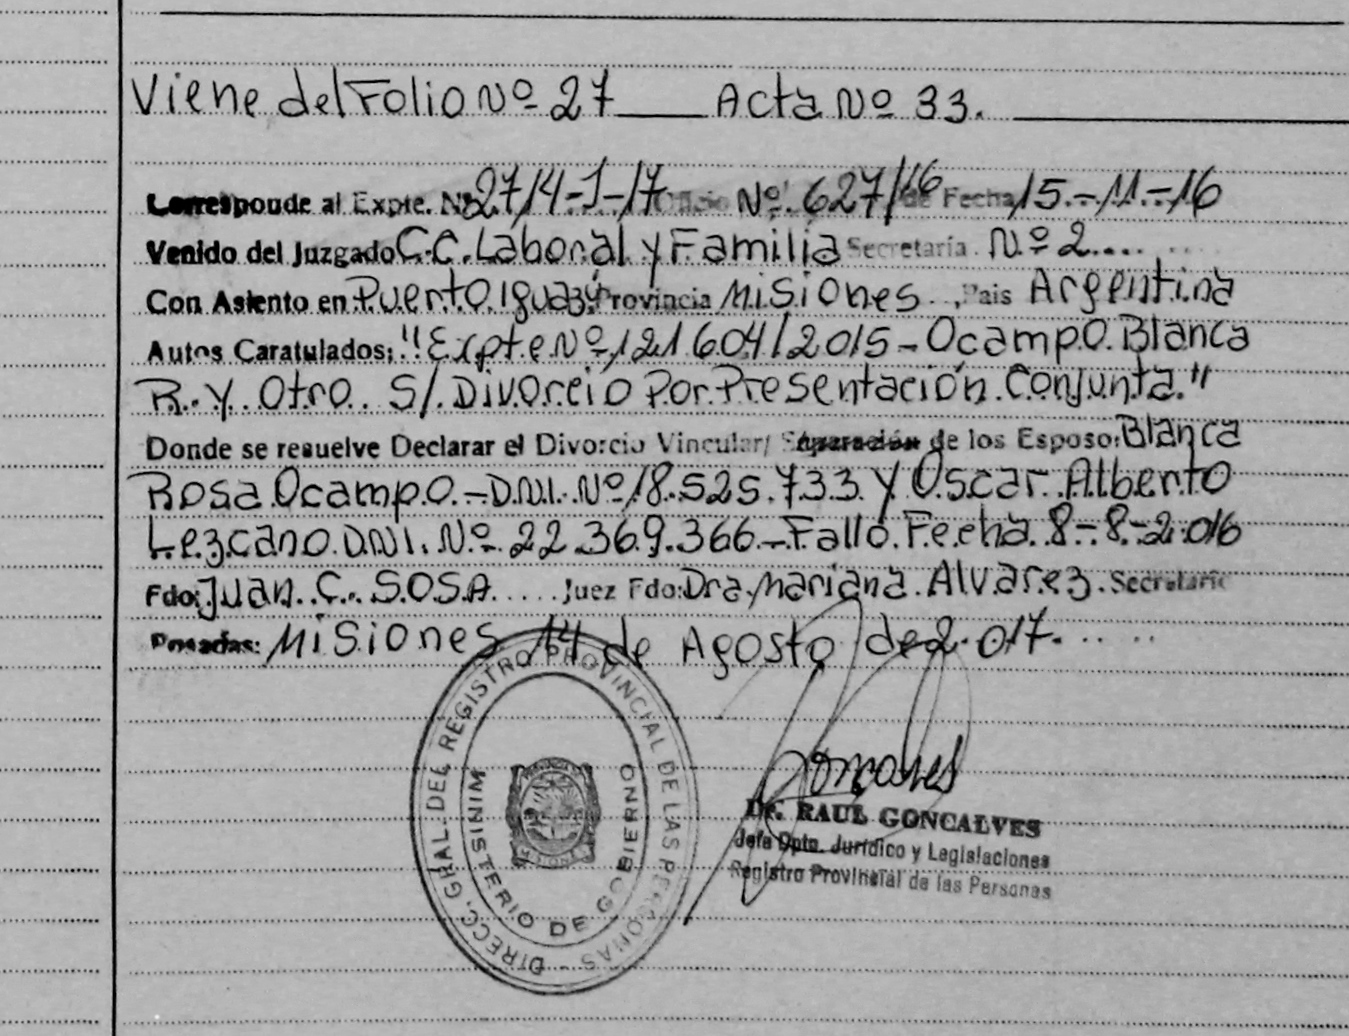 Viene del Folio Nº 27 ____ Acta Nº 33.
Corresponde al Expte. Nº 2714-J-17 Oficio Nº. 627/16 de Fecha 15.-11.-16
Venido del Juzgado C.C. Laboral y Familia Secretaría. Nº 2....
Con Asiento en Puerto Iguazú Provincia Misiones, Pais Argentina
Autos Caratulados: "Expte Nº 121604/2015-Ocampo Blanca
R. Y Otro S/. Divorcio Por Presentación Conjunta."
Donde se resuelve Declarar el Divorcio Vincular/ Separación de los Esposo: Blanca
Rosa Ocampo.-D.N.I. Nº 18.525.733 Y Oscar Alberto
Lezcano D.N.I. Nº. 22.369.366-Fallo Fecha 8-8-2.016
Fdo: Juan C. SOSA..... Juez Fdo: Dra. Mariana Alvarez. Secretario
Posadas: Misiones 14 de Agosto de 2.017.....
DIRECC. GRAL. DEL REGISTRO PROVINCIAL DE LAS PERSONAS -
MINISTERIO DE GOBIERNO
MISIONES
Goncalves
Dr. RAUL GONCALVES
Jefe Dpto. Jurídico y Legislaciones
Registro Provincial de las Personas